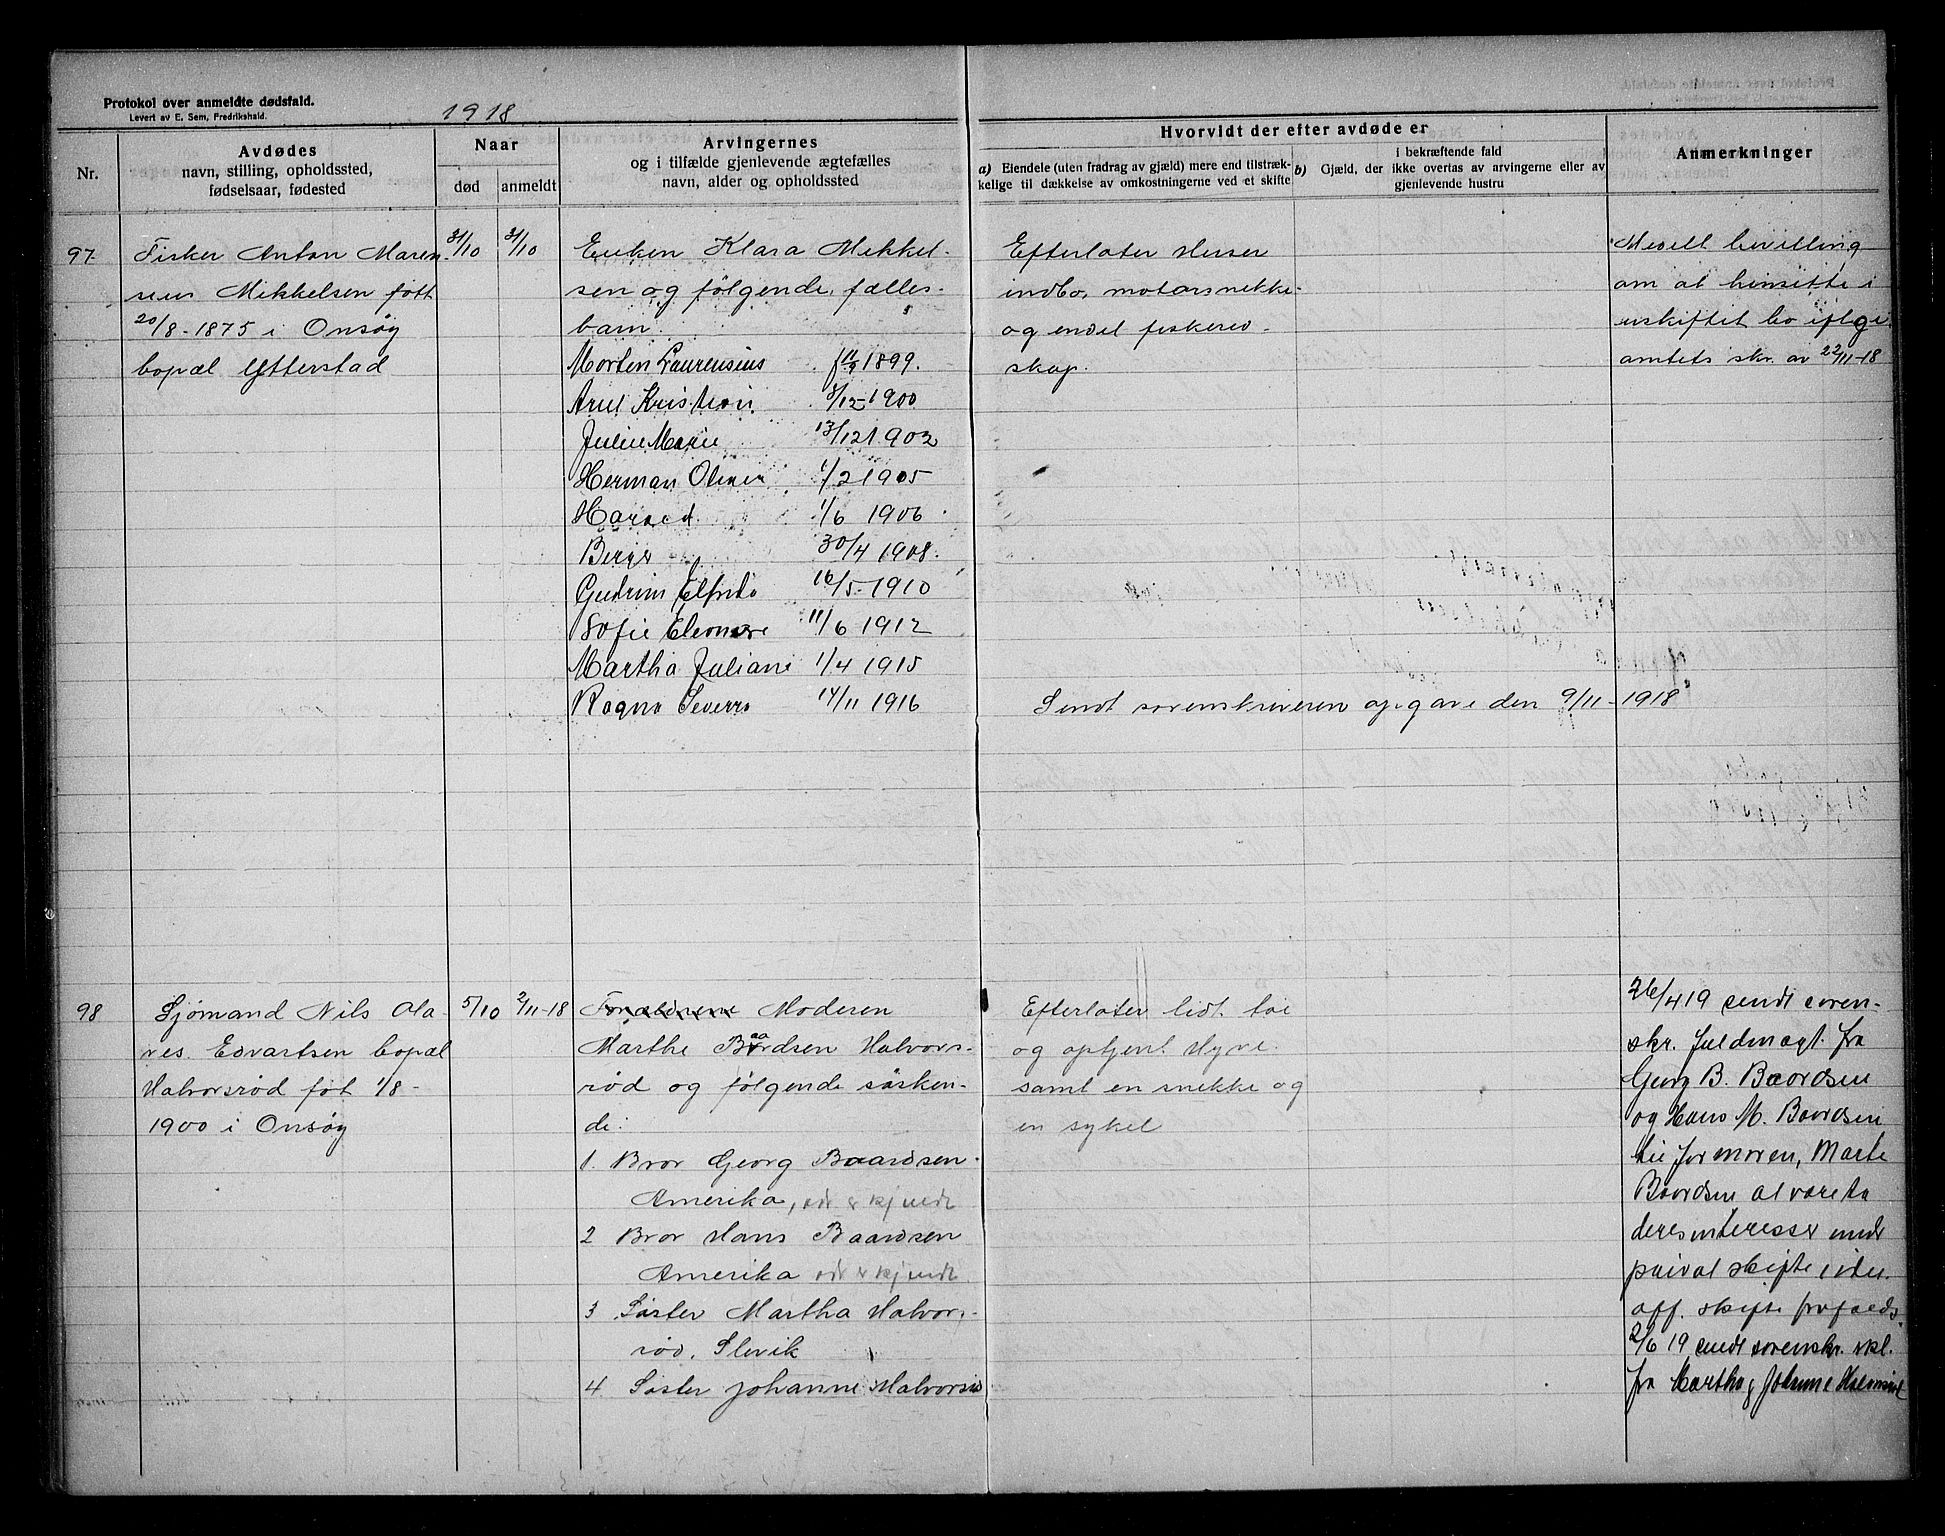 Protokol over anmeldte dødsfald.
Levert av E. Sem, Fredrikshald.
1918
Nr.
Avdødes
navn, stilling, opholdssted,
fødselsaar, fødested
Naar
død
anmeldt
Arvingernes
og i tilfælde gjenlevende ægtefælles
navn, alder og opholdssted
Hvorvidt der efter avdøde er
a) Eiendele (uten fradrag av gjæld) mere end tilstræk-
kelige til dækkelse av omkostningerne ved et skifte
b) Gjæld, der i bekræftende fald ikke overtas av arvingerne eller av
gjenlevende hustru
Anmerkninger
97
Fisker Anton Maren
sius Mikkelsen født
20/8-1875 i Onsøy
bopæl Ytterstad
31/10
31/10
Enken Klara Mikkel-
sen og følgende fælles-
barn.
Morten Laurensius f 1899.
Kristian /12-1900
Julie Marie 13/12 1902
Herman Oliver 1/2 1905
1/6 1906
Berger 30/4 1908.
Gudrun Elfrida 16/5-1910
Sofie Eleonore 11/6 1912
Martha Juliane 1/4 1915
Ragna Severra 14/11 1916
Efterlater Huser
indbo, motorsnekke
og endel fiskered-
skap.
Meddelt bevilling
om at hensitte i
uskiftet bo ifølge
amtets skr. av 22/11-18
Sendt sorenskriveren opgave den 9/11-1918
98
Sjømand Nils Ola-
ves Edvartsen bopæl
Halvorsrød føt 1/8-
1900 i Onsøy
5/10
2/11-18
Forældrene Moderen
Marthe Baardsen Halvors-
rød og følgende søsken-
de:
1. Bror Georg Baardsen
Amerika,
2 Bror Hans Baardsen
Amerika
3 Søster Martha Halvors-
rød, Slevik
4 Søster Johanne Halvorsrød
Efterlater lidt tøi
og optjent Hyre
samt en snekke og
en sykel
26/4 19 sendt soren-
skr. fuldmagt fra
Georg B. Baardsen
og Hans M. Baardsen
til formoren, Marte
Baardsen at vareta
deres interesser med
privat skifte
off. skifte
2/6 19 sendt sorenskr. skl.
fra Martha og Johanne Halvorsrød